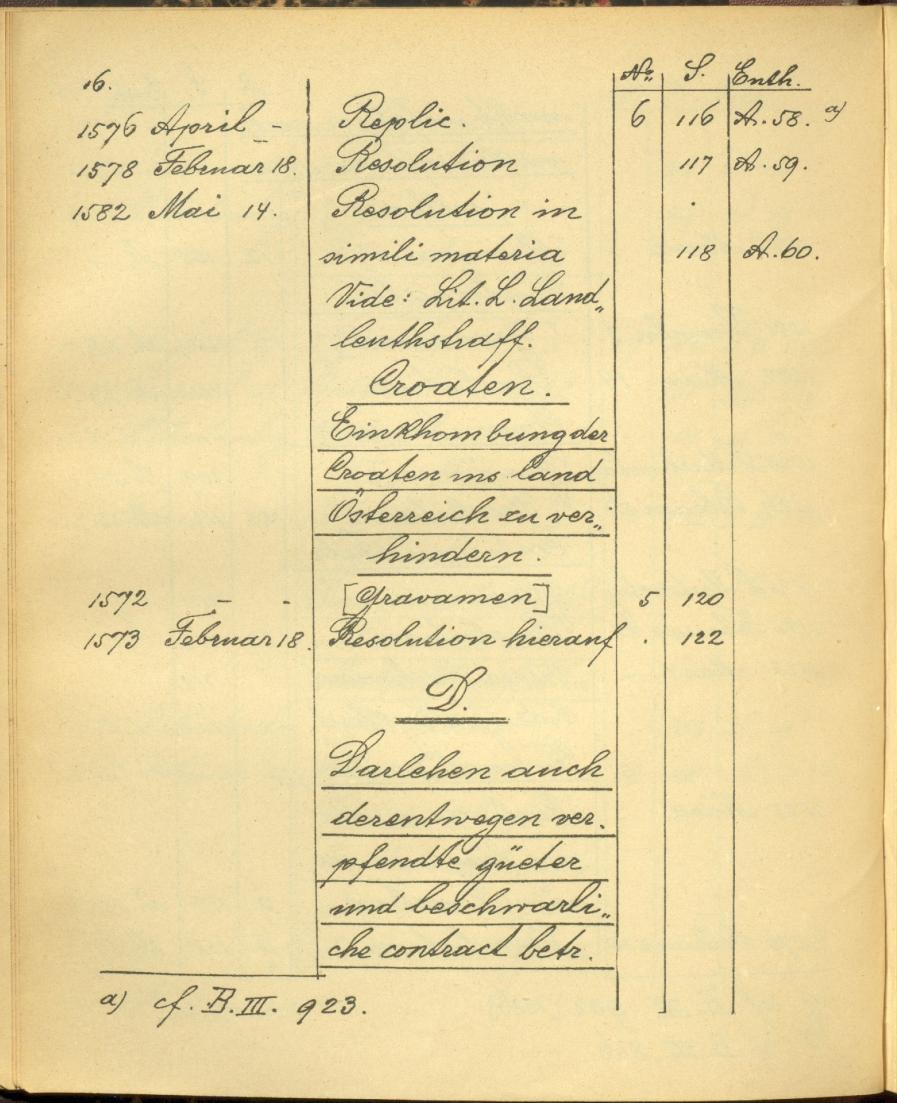 16.
№ S. Enth.
1576 April - Replic. 6 116 A. 58. a)
1578 Februar 18. Resolution 117 A. 59.
1582 Mai 14. Resolution in
simili materia 118 A. 60.
Vide: Lit. L. Land„
leuthstraff.
Croaten.
Einkhombung der
Croaten ins Land
Österreich zu ver„
hindern.
1572 - - [Gravamen] 5 120
1573 Februar 18. Resolution hierauf . 122
D.
Darlehen auch
derentwegen ver.
pfendte güeter
und beschwarli„
che contract betr.
a) cf. B. III. 923.